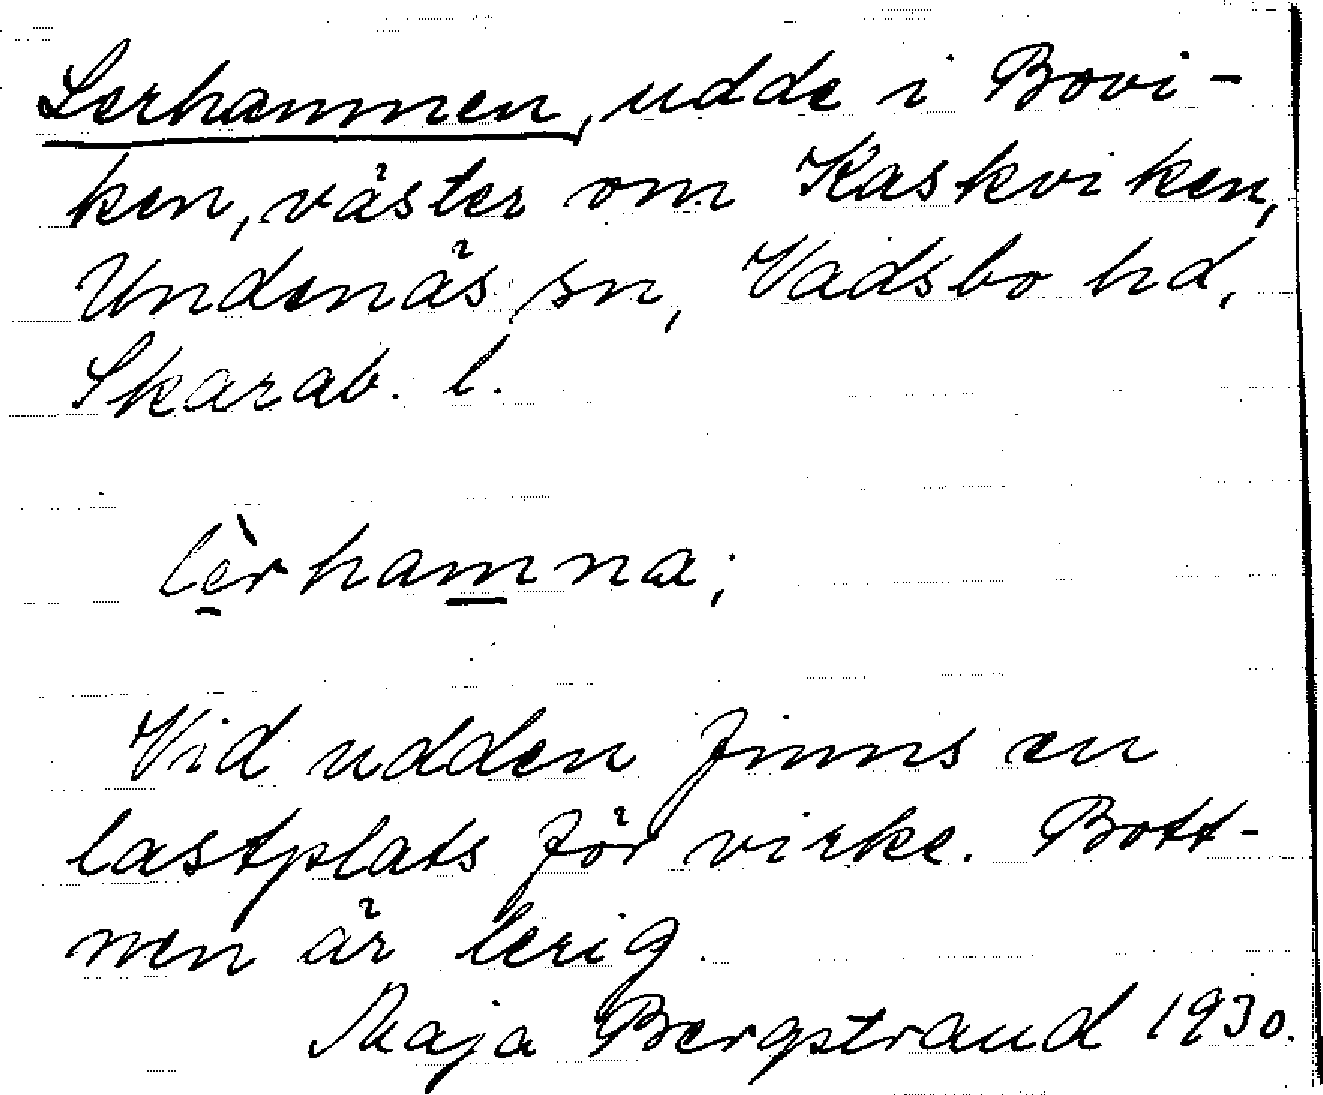 Lerhammen, udde i Bovi-
ken, väster om Kaskviken,
Undenäs sn, Vadsbo hd,
Skarab. l.
lèrhamna;
Vid udden finns en
lastplats för virke. Bott-
nen är lerig.
Maja Bergstrand 1930.